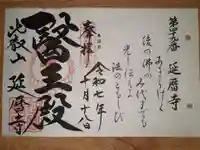 延暦寺
あきらけく
後の佛の
み代までも
光りつたへよ
法のともしび
奉拝
令和七年
十月十八日
醫王殿
比叡山
延暦寺